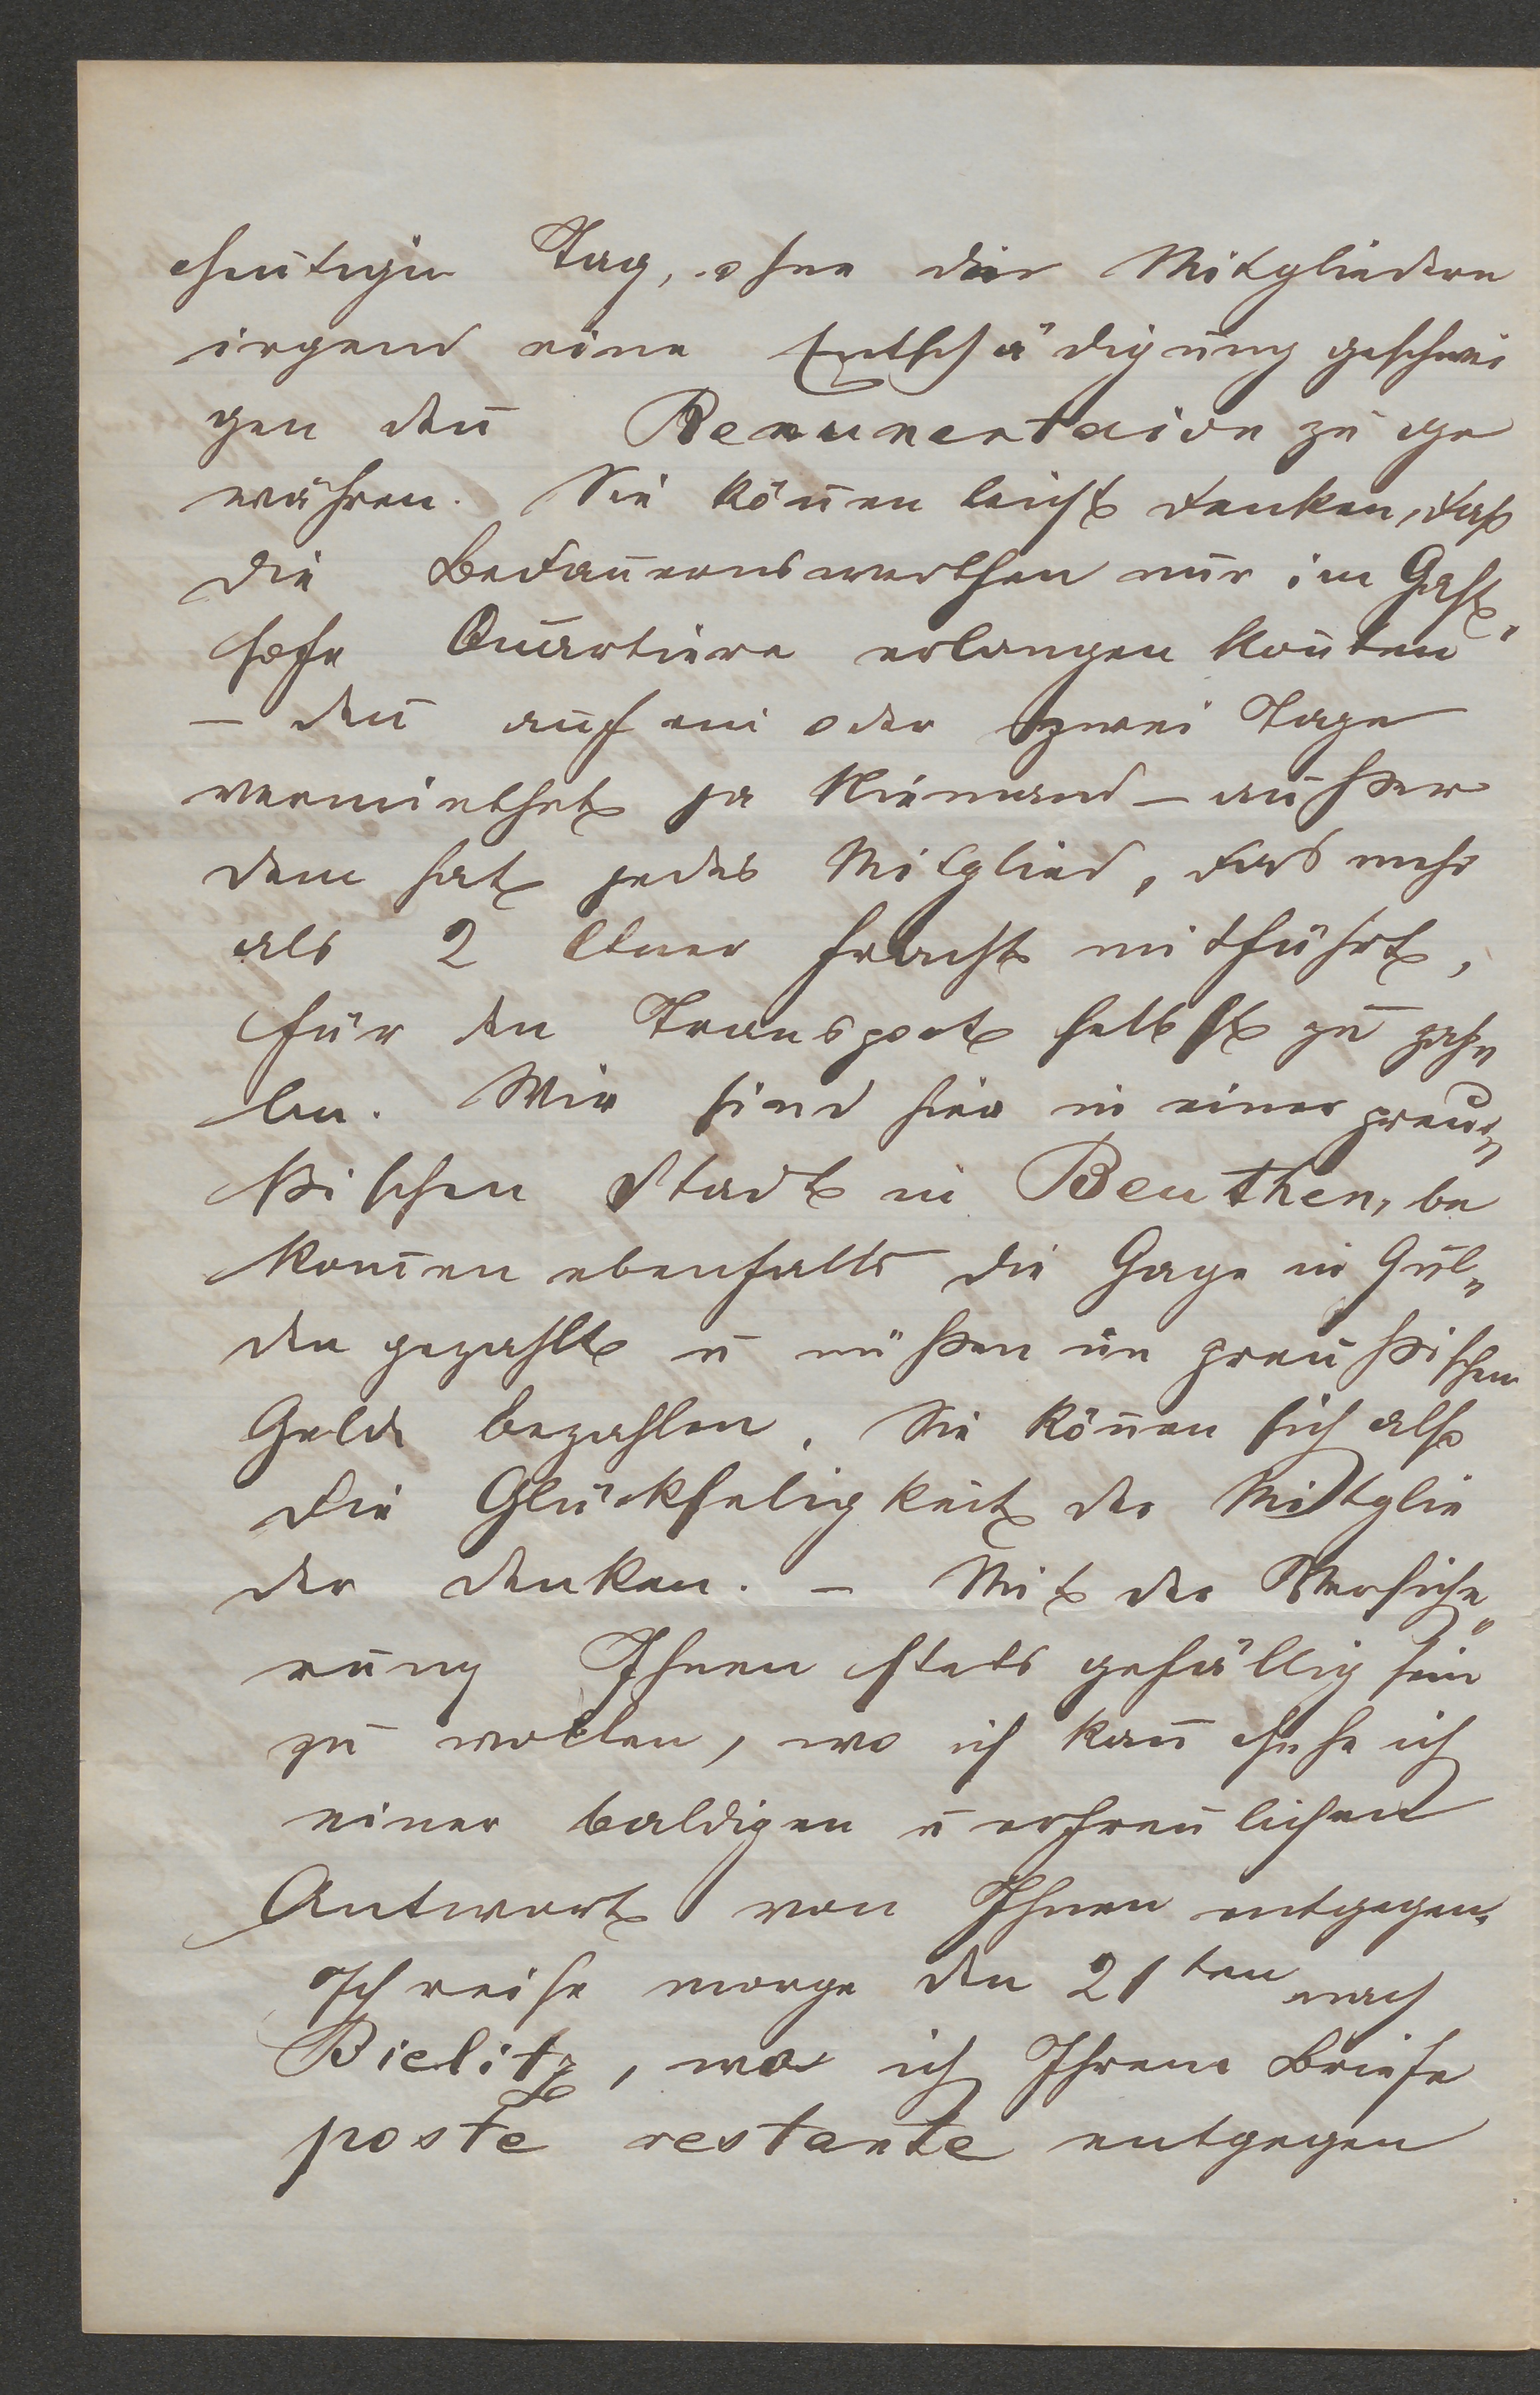 heutigen Tag, ohne den Mitgliedern
irgend eine Entschädigung geschwei
gen den̄ Renumertaion zu ge
währen. Sie kön̄en leicht denken, daß
die Bedauernswerthen nur im Gast„
hofe Quartiere erlangen kon̄ten
– den̄ auf ein oder zwei Tage
vermiethet ja Niemand – außer
dem hat jedes Mitglied, das mehr
als 2 Ctner Fracht mitführt,
für den Transport selbst zu zah„
len. Wir sind hier in einer preu„
ßischen Stadt in Beuthen, be
kom̄en ebenfalls die Gage in Gul„
den gezahlt u müßen im preußischen
Gelde bezahlen. Sie kön̄en sich also
die Glückseligkeit der Mitglie
der denken. – Mit der Versiche„
rung Ihnen stets gefällig sein
zu wollen, wo ich kan̄ sehe ich
einer baldigen u erfreulichen
Antwort von Ihnen entgegen.
Ich reise morge den 21ten nach
Bielitz, wo ich Ihrem Briefe
poste restante entgegen